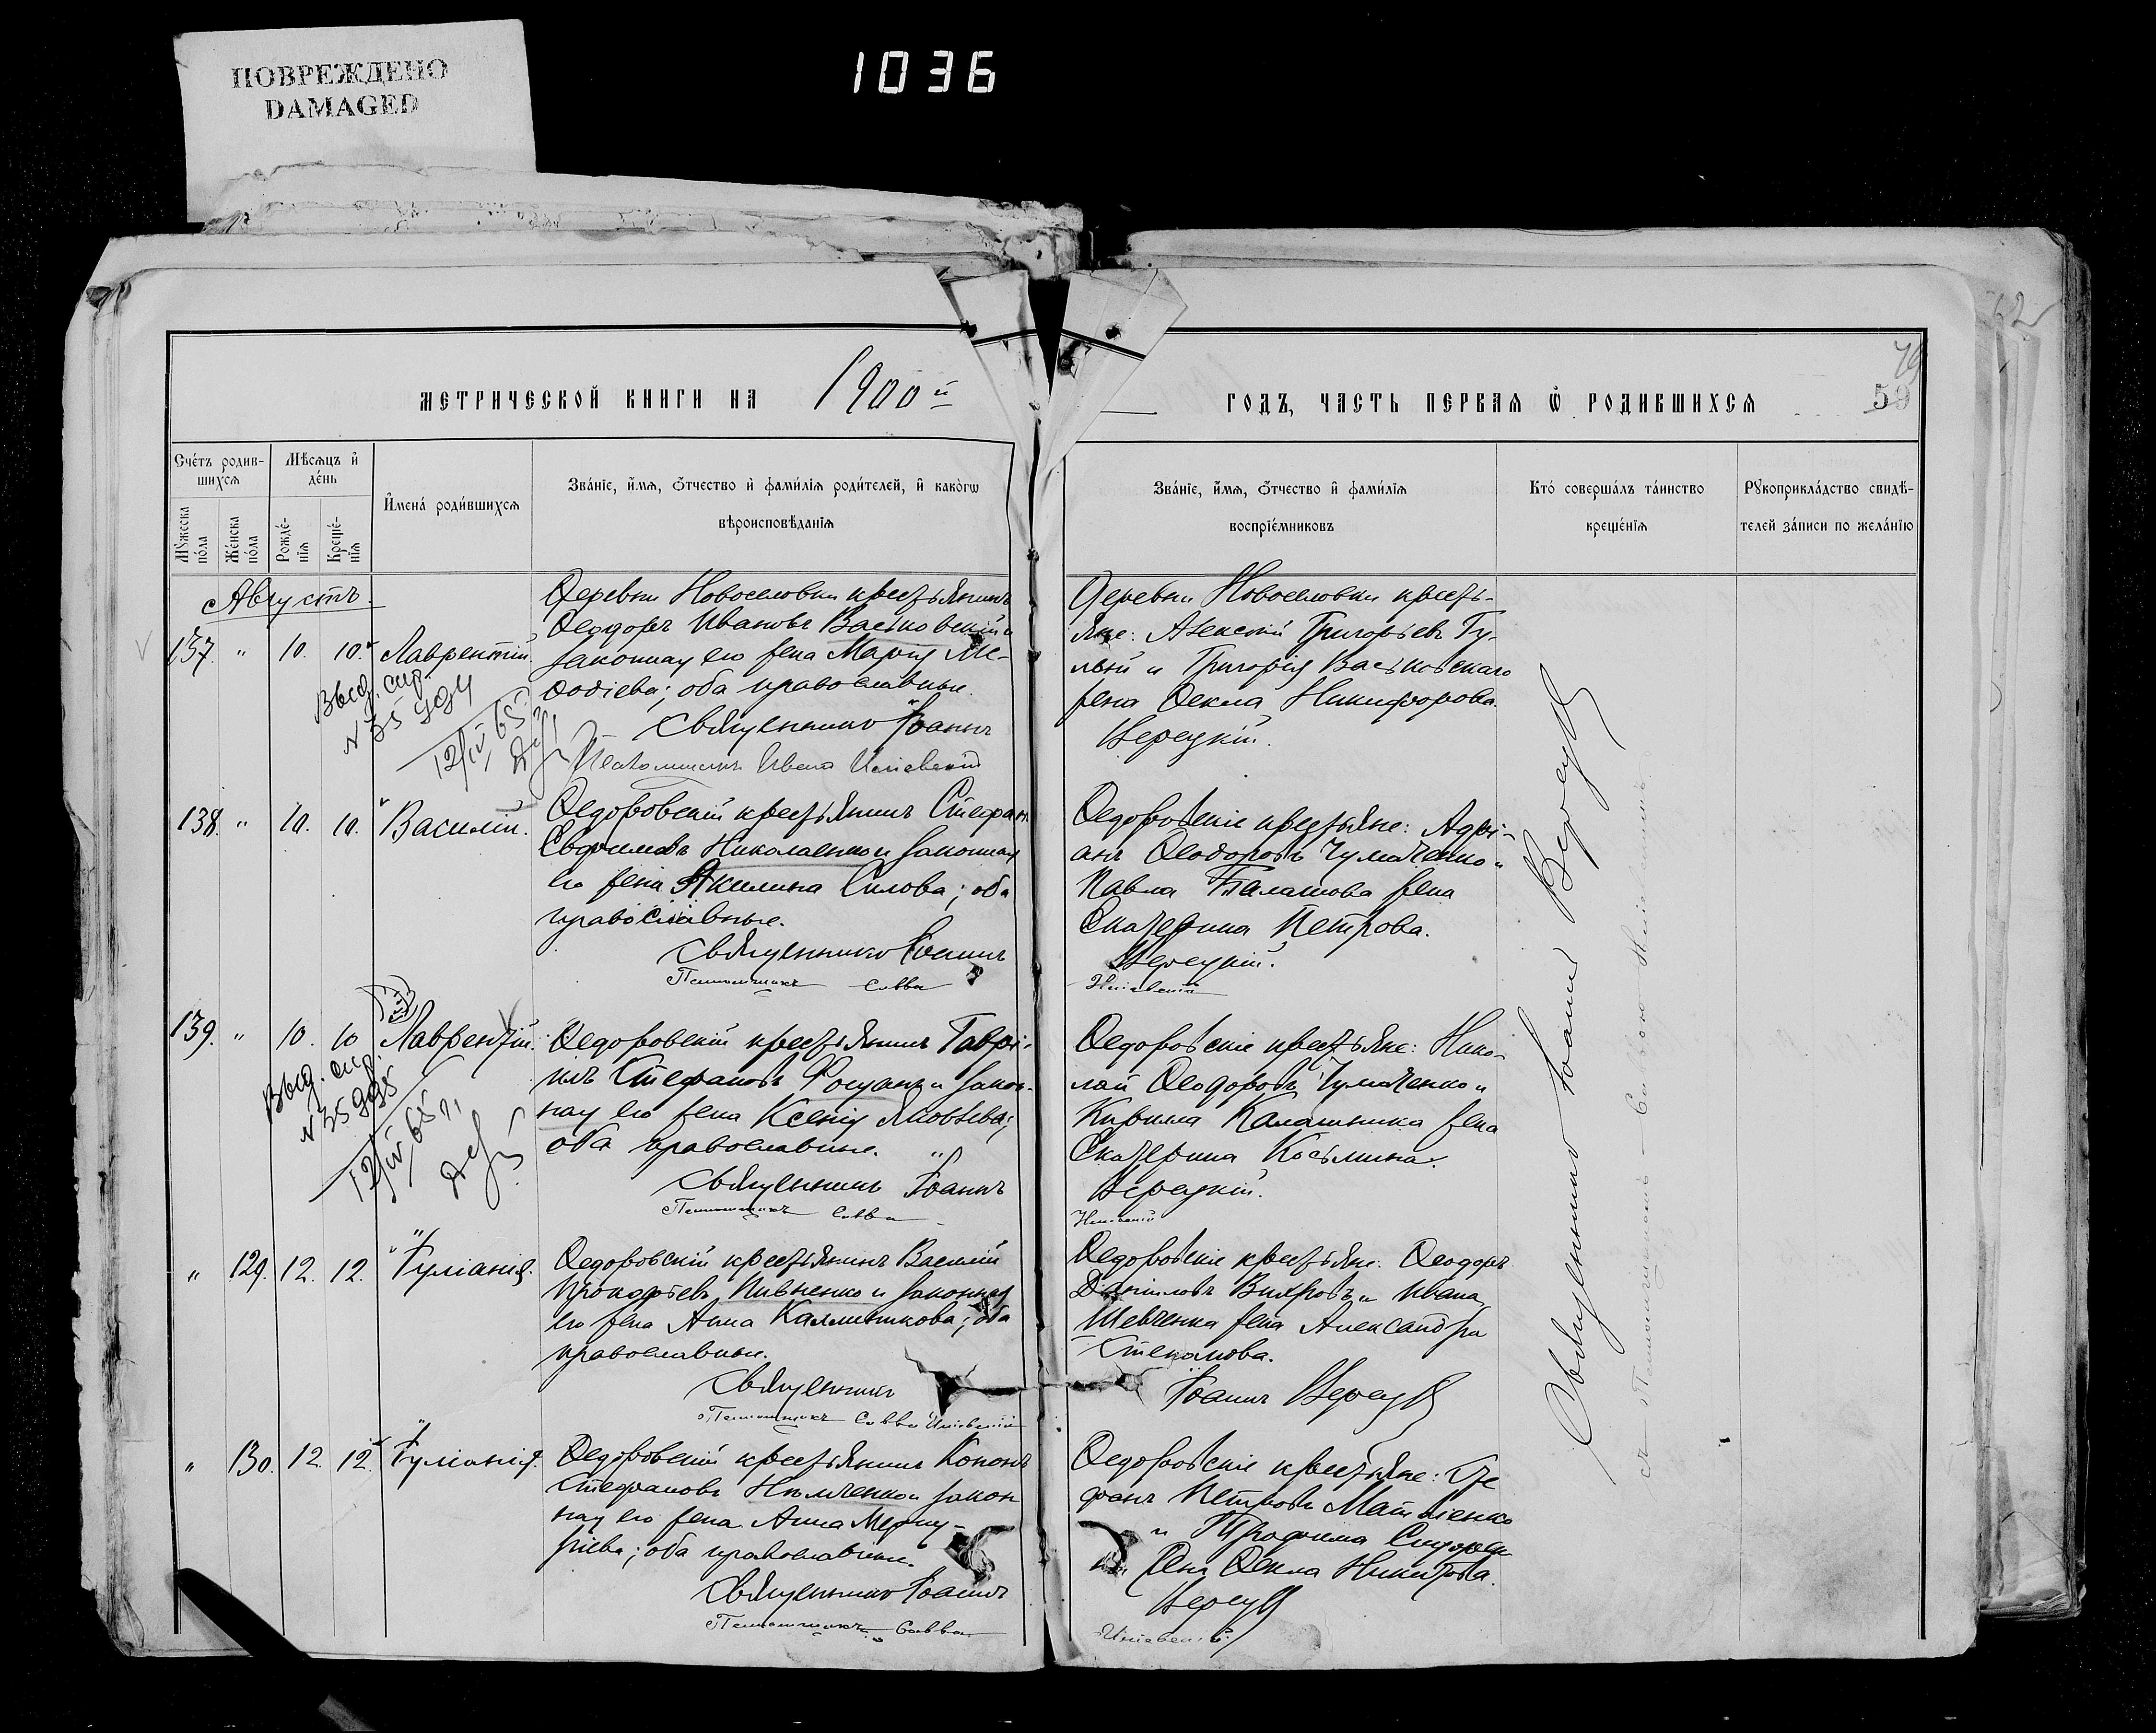 ПОВРЕЖДЕНО
DAMAGED
1036
МЕТРИЧЕСКОЙ КНИГИ НА 1900 й
ГОДЪ, ЧАСТЬ ПЕРВАЯ Ѡ РОДИВШИХСЯ
59
Сче́тъ родив-
шихся
Мѣсяцъ и
де́нь
Мꙋжеска
по́ла
Же́нска
по́ла
Рожде́-
нія
Креще́-
нія
Имена́ роди́вшихся
Зва́ніе, и́мя, ѻ́тчество и фами́лія роди́телей, и како́гѡ
вѣроисповѣ́данія
Зва́ніе, и́мя, ѻ́тчество и фами́лія
воспріе́мниковъ
Кто́ соверша́лъ та́инство
креще́нія
Рꙋкоприкла́дство свидѣ́-
телей за́писи по жела́нію
Августъ.
137. " 10. 10. Лаврентій.
Выд. спр.
N 35994
12/IV 65 г.
Деревни Новоселовки крестьянинъ
Ѳеодоръ Ивановъ Васьковскій и
законная его жена Марія Ме-
ѳодіева; оба православные.
Священникъ Іоаннъ
Псаломщикъ
Деревни Новоселовки кресть-
яне: Алексій Григорьевъ Гу-
лый и Григорія Васьковскаго
жена Ѳекла Никифорова.
Верецкій.
138. " 10. 10. Василій.
Ѳедоровскій крестьянинъ Стефанъ
Евфимовъ Николаенко и законная
его жена Акилина Силова; оба
православные.
Священникъ Іоаннъ
Псаломщикъ Савва
Ѳедоровскіе крестьяне: Адрі-
анъ Ѳеодоровъ Чумаченко и
Павла Балашова жена
Екатерина Петрова.
Верецкій.
139. " 10. 10 Лаврентій.
Выд. спр.
N 35995
12/IV 65 г.
Ѳедоровскій крестьянинъ Гаврі-
илъ Стефановъ и закон-
ная его жена Ксенія Яковлева;
оба православные.
Священникъ Іоаннъ
Псаломщикъ Савва
Ѳедоровскіе крестьяне: Нико-
лай Ѳеодоровъ Чумаченко и
Кирилла Калашника жена
Екатерина Косьмина.
Верецкій.
" 129. 12. 12. Іуліанія.
Ѳедоровскій крестьянинъ Василій
Прокофьевъ Пивненко и законная
его жена Анна Каллиникова; оба
православные.
Священникъ
Псаломщикъ Савва
Ѳедоровскіе крестьяне: Ѳеодоръ
Даниловъ Вихровъ и Ивана
Шевченка жена Александра
Степанова.
Іоаннъ Верецкій
" 130. 12. 12. Іуліанія.
Ѳедоровскій крестьянинъ Кононъ
Стефановъ Нимченко и закон
ная его жена Анна Мерку-
ріева; оба православные.
Священникъ Іоаннъ
Псаломщикъ Савва
Ѳедоровскіе крестьяне: Сте
фанъ Петровъ Матвіенко
и Трофима
жена Ѳекла Никитова.
Верецкій
Священникъ Іоаннъ Верецкій
съ Псаломщикомъ Саввою